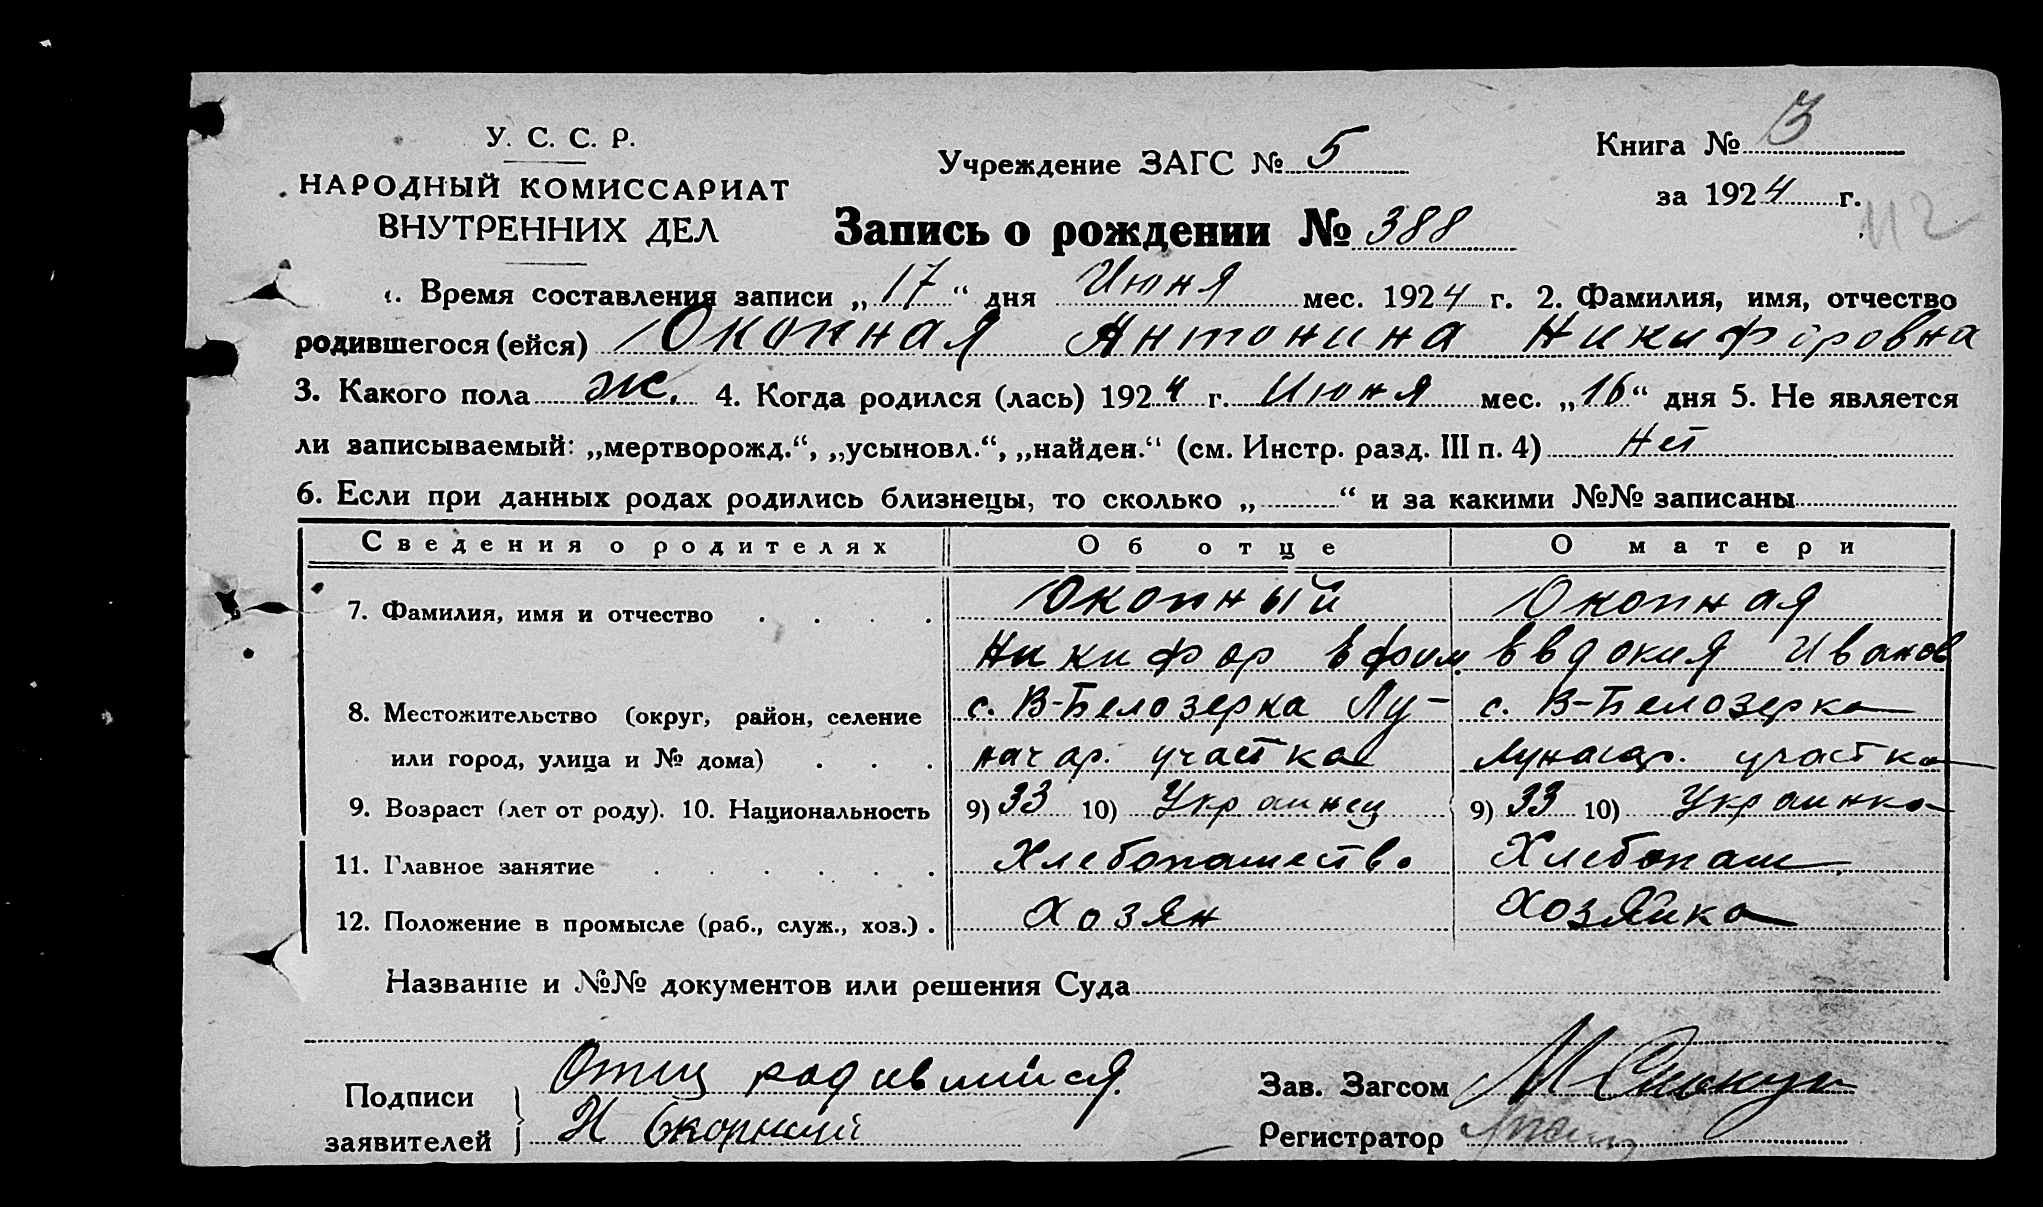 У. С. С. Р.
НАРОДНЫЙ КОМИССАРИАТ
ВНУТРЕННИХ ДЕЛ
Учреждение ЗАГС № 5
Книга № 3
за 1924 г.
112
Запись о рождении № 388
1. Время составления записи „17“ дня Июня мес. 1924 г. 2. Фамилия, имя, отчество
родившегося (ейся) Окопная Антонина Никифоровна
3. Какого пола ж. 4. Когда родился (лась) 1924 г. Июня мес. „16“ дня 5. Не является
ли записываемый: „мертворожд.“, „усыновл.“, „найден.“ (см. Инстр. разд. III п. 4) Нет
6. Если при данных родах родились близнецы, то сколько „ “ и за какими №№ записаны
Сведения о родителях Об отце О матери
7. Фамилия, имя и отчество Окопный Окопная
Никифор Ефим. Евдокия Иванов
8. Местожительство (округ, район, селение с. В-Белозерка Лу- с. В-Белозерка
или город, улица и № дома) начар. участка Луначар. участка
9. Возраст (лет от роду). 10. Национальность 9) 33 10) Украинец 9) 33 10) Украинка
11. Главное занятие Хлебопашество Хлебопаш
12. Положение в промысле (раб., служ., хоз.) Хозян Хозяйка
Название и №№ документов или решения Суда
Подписи
заявителей
Отец родившийся.
Н
Зав. Загсом М
Регистратор